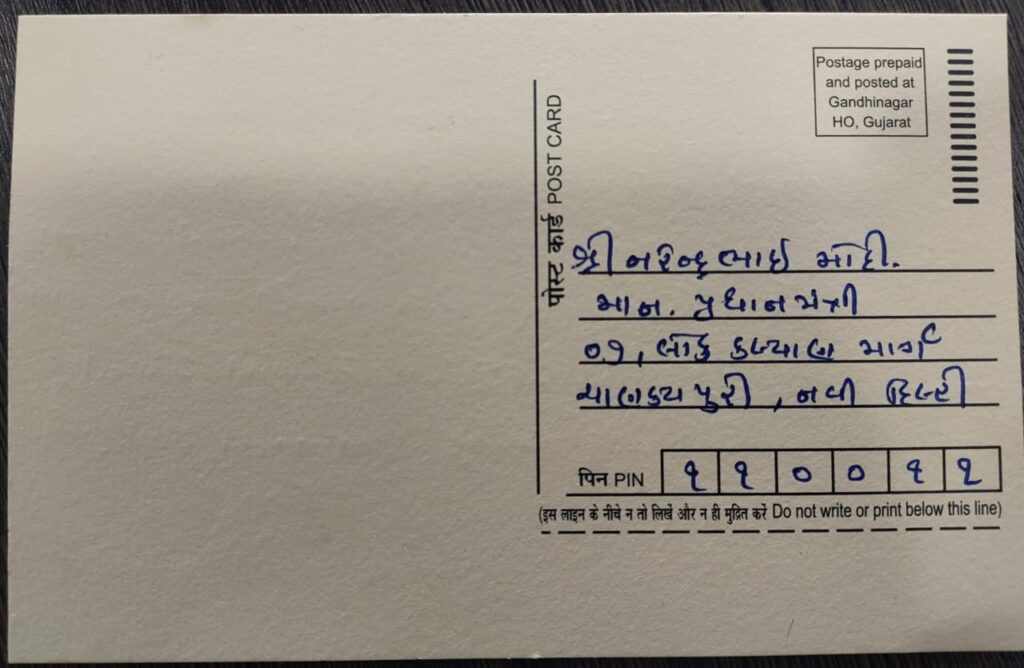 Postage prepaid
and posted at
Gandhinagar
HO, Gujarat
पोस्ट कार्ड POST CARD
શ્રી નરેન્દ્રભાઈ મોદી.
માન. પ્રધાનમંત્રી
૦૧, લોક કલ્યાણ માર્ગ
ચાણક્યપુરી, નવી દિલ્હી
पिन PIN ૧ ૧ ૦ ૦ ૧ ૧
(इस लाइन के नीचे न तो लिखें और न ही मुद्रित करें Do not write or print below this line)